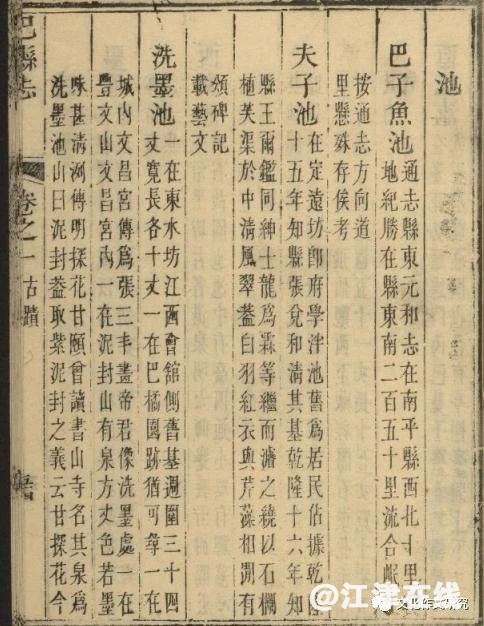 池
巴子魚池
通志縣東元和志在南平縣西北十里
地紀勝在縣東南二百五十里流合岷
按通志方向道
里懸殊存俟考
夫子池
在定遠坊卽府學泮池舊爲居民佔據乾
十五年知縣張兌和清其基乾隆十六年知
縣王爾鑑同紳士龍爲霖等繼而濬之繞以石欄
植芙渠於中清風翠蓋白羽紅衣與芹藻相間有
頌碑記
載藝文
洗墨池
一在東水坊江西會館側舊基週圍三十四
丈寬長各十丈一在巴橘園跡猶可尋一在
城內文昌宮傳爲張三丰畫帝君像洗墨處一在
豐文山文昌宮內一在泥封山有泉方丈色若墨
味甚清洌傳明探花甘頤曾讀書山寺名其泉爲
洗墨池山曰泥封蓋取紫泥封之義云甘探花今
巴縣志
卷之一 古蹟
@江津在线